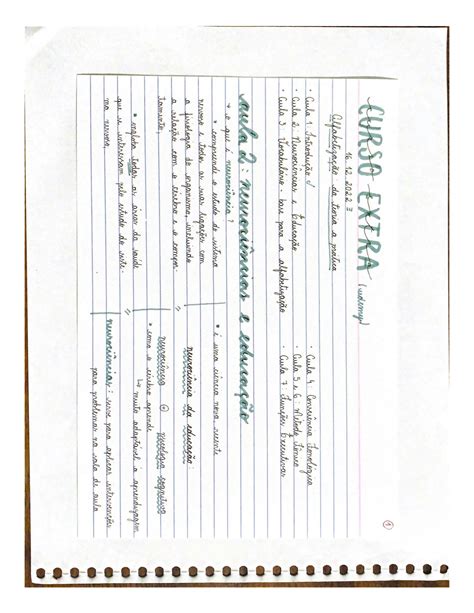 ①
CURSO EXTRA (udemy)
16.12.2022
Alfabetização da teoria a prática
• Aula 1: Introdução
• Aula 2: Neurociências e Educação
• Aula 3: Vocabulário: base para a alfabetização
• Aula 4: Consciência Fonológica
• Aula 5 e 6: Método Fônico
• Aula 7: Funções Executivas
aula 2: neurociências e educação
→ o que é neurociência?
• compreende o estudo do sistema
nervoso e todas as suas ligações com
a fisiologia do organismo, incluindo
a relação com o cérebro e o compor-
tamento.
• engloba todas as áreas da saúde
que se interessam pelo estudo do siste-
ma nervoso.
• é uma ciência nova, recente
neurociência da educação:
neurociência + psicologia cognitiva
• como o cérebro aprende
↳ muito adaptável à aprendizagem
neurociências: serve para aplicar intervenções
para problemas na sala de aula